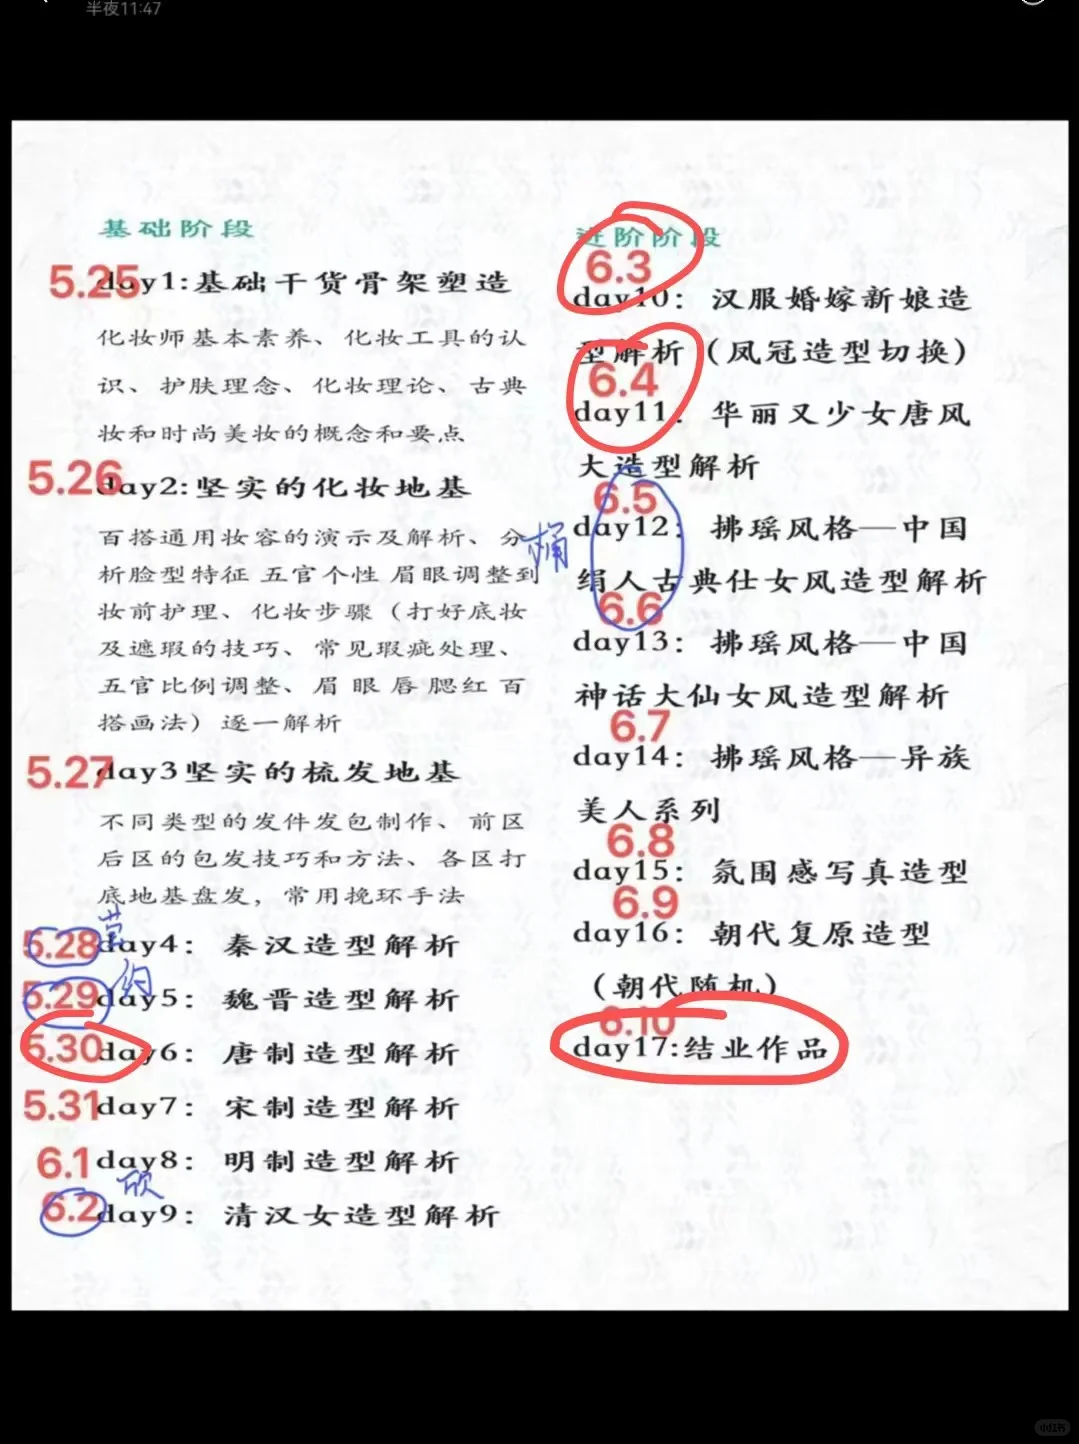 半夜11:47
基础阶段
5.25 day1:基础干货骨架塑造
化妆师基本素养、化妆工具的认
识、护肤理念、化妆理论、古典
妆和时尚美妆的概念和要点
5.26 day2:坚实的化妆地基
百搭通用妆容的演示及解析、分
析脸型特征 五官个性 眉眼调整到
妆前护理、化妆步骤（打好底妆
及遮瑕的技巧、常见瑕疵处理、
五官比例调整、眉眼唇腮红百
搭画法）逐一解析
5.27 day3坚实的梳发地基
不同类型的发件发包制作、前区
后区的包发技巧和方法、各区打
底地基盘发，常用挽环手法
5.28 day4：秦汉造型解析
5.29 day5：魏晋造型解析
5.30 day6：唐制造型解析
5.31 day7：宋制造型解析
6.1 day8：明制造型解析
欣
6.2 day9：清汉女造型解析
进阶阶段
6.3
day10：汉服婚嫁新娘造
型解析（凤冠造型切换）
6.4
day11：华丽又少女唐风
大造型解析
6.5
day12：拂瑶风格—中国
绢人古典仕女风造型解析
6.6
day13：拂瑶风格—中国
神话大仙女风造型解析
6.7
day14：拂瑶风格—异族
美人系列
6.8
day15：氛围感写真造型
6.9
day16：朝代复原造型
（朝代随机）
6.10
day17:结业作品
小红书